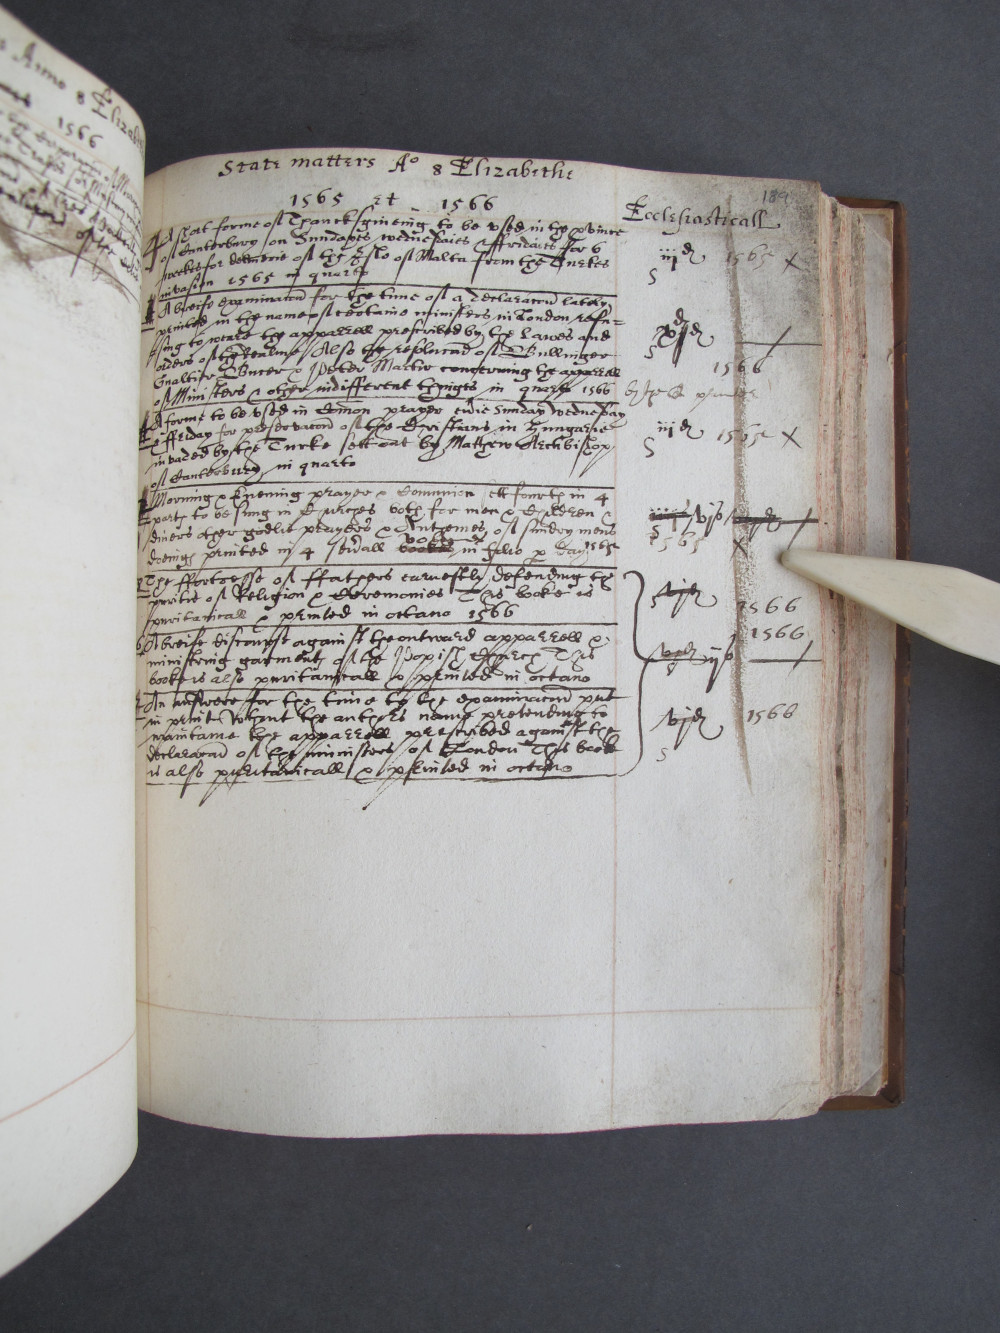 Anno 8 Elizab
1566
State matters Ao 8 Elizabethe
1565 et 1566
Ecclesiasticall
189
A short forme of Thanckesgiueing to be vsed in the prouince
of Canterbury on Sundaies wednesdaies & ffridaies for 6
weekes for deliuerie of the Isle of Malta from the Turkes
invasion 1565 in quarto
iiijd 1565 X
S
A breife examinacon for the time of a declaracon lately
printed in the name of certaine ministers in London refu=
sing to weare the apparell prescribed by the Lawes and
orders of the realme Also the replucacon of Bullinger
Gualter Bucer & Peter Martir concerning the apparell
of Ministers & other indifferent thinges in quarto 1566
S
1566
A forme to be vsed in Comon prayer euerie Sunday Wednesday
& ffriday for preseruacon of the Christians in Hungarie
invaded by the Turke sett out by Mathew Archbishop
of Canterbury in quarto
iiijd 1565 X
S
Morning & Euening prayer & Communion sett fourth in 4
parts to be sung in Churches both for men & Children &
diuers other godlie prayers & Anthemes of sundry mens
doeings printed in 4 seuerall bookes in folio p Day 1565
1565 X
The ffortresse of ffathers earnestly defending the
puritie of Religion & Ceremonies This booke is
puritanicall & printed in octauo 1566
vjd 1566
S
A breife discourse against the outward apparell &
ministring garments of the Popish Church This
booke is also puritanicall & printed in octauo
1566
S
An answere for the time to the examinacon put
in print without the authors name pretending to
maintaine the apparell prescribed against the
declaracon of the ministers of London This booke
is also puritanicall & printed in octauo
vjd 1566
S